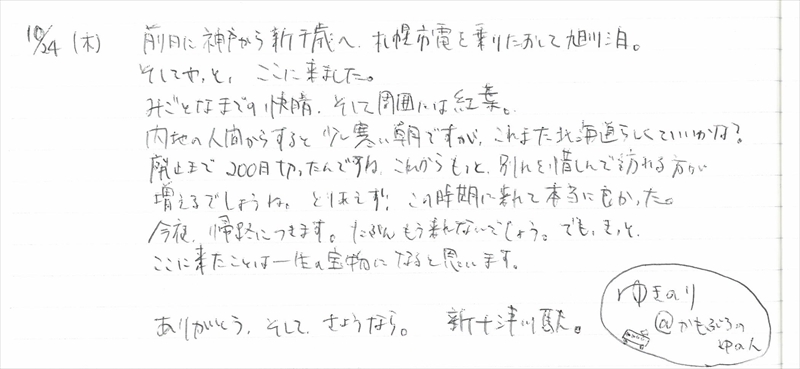 10/24 (木) 前日に神戸から新千歳へ、札幌市電を乗りたおして旭川泊。
そしてやっと、ここに来ました。
みごとなまでの快晴、そして周囲には紅葉も
内地の人間からすると少し寒い朝ですが、これまた北海道らしくていいかな?
廃止まで200日切ったんですね。これからもっと、別れを惜しんで訪れる方が
増えるでしょうね。とりあえず、この時期に来れて本当に良かった。
今夜、帰路につきます。たぶんもう来れないでしょう。でも、きっと、
ここに来たことは一生の宝物になると思います。
ありがとう、そして、さようなら。 新十津川駅。
ゆきのり
@かもぶろの
中の人